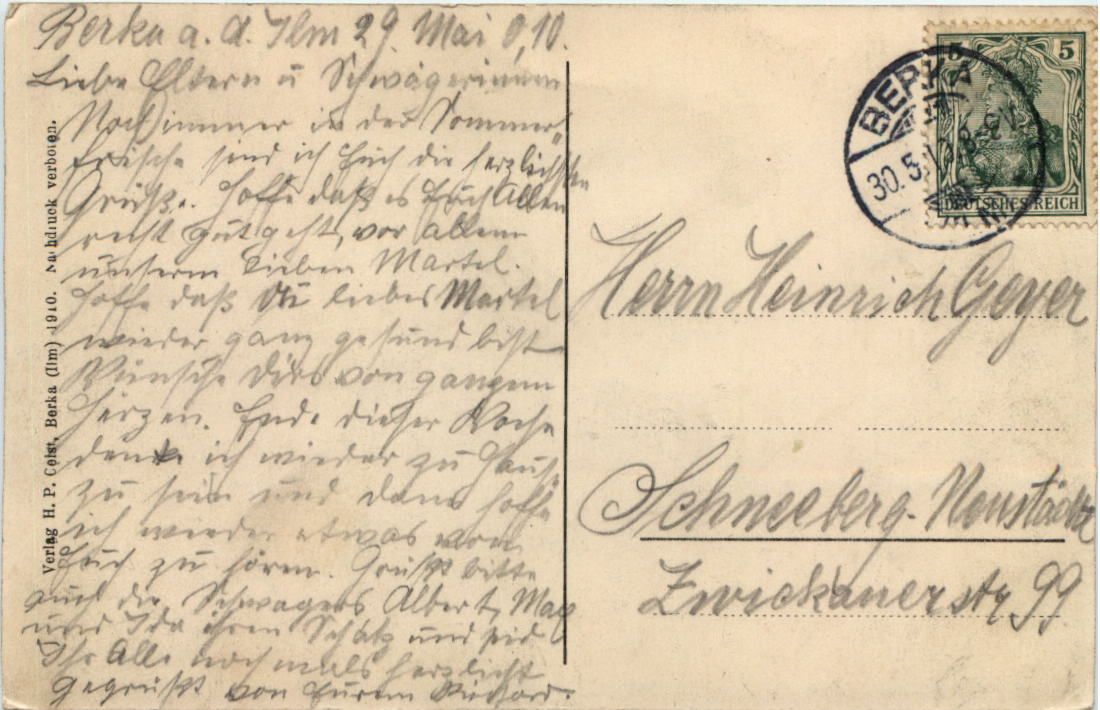 Berka a. d. Ilm 29. Mai 0,10.
Liebe Eltern u Schwägerinnen
Noch immer in der Sommer-
frische sind ich Euch die herzlichsten
Grüße. Hoffe daß es Euch Allen
recht gut geht, vor allem
unserm lieben Martel.
Hoffe daß Du liebes Martel
wieder ganz gesund bist
Wünsche Dirs von ganzem
Herzen. Ende dieser Woche
denke ich wieder zu Hause
zu sein und dann hoffe
ich wieder etwas von
Euch zu hören. Grüßt bitte
auch die Schwagers Albert, Max
und Ida ihren Schatz und seid
Ihr Alle nochmals herzlichst
gegrüßt von Eurem Richard.
Verlag H. P. Cohst, Berka (Ilm) 1910. Nachdruck verboten.
5 5
DEUTSCHES REICH
BERKA
30.5.
Herrn Heinrich Geyer
Schneeberg-Neustädtel
Zwickauerstr 99